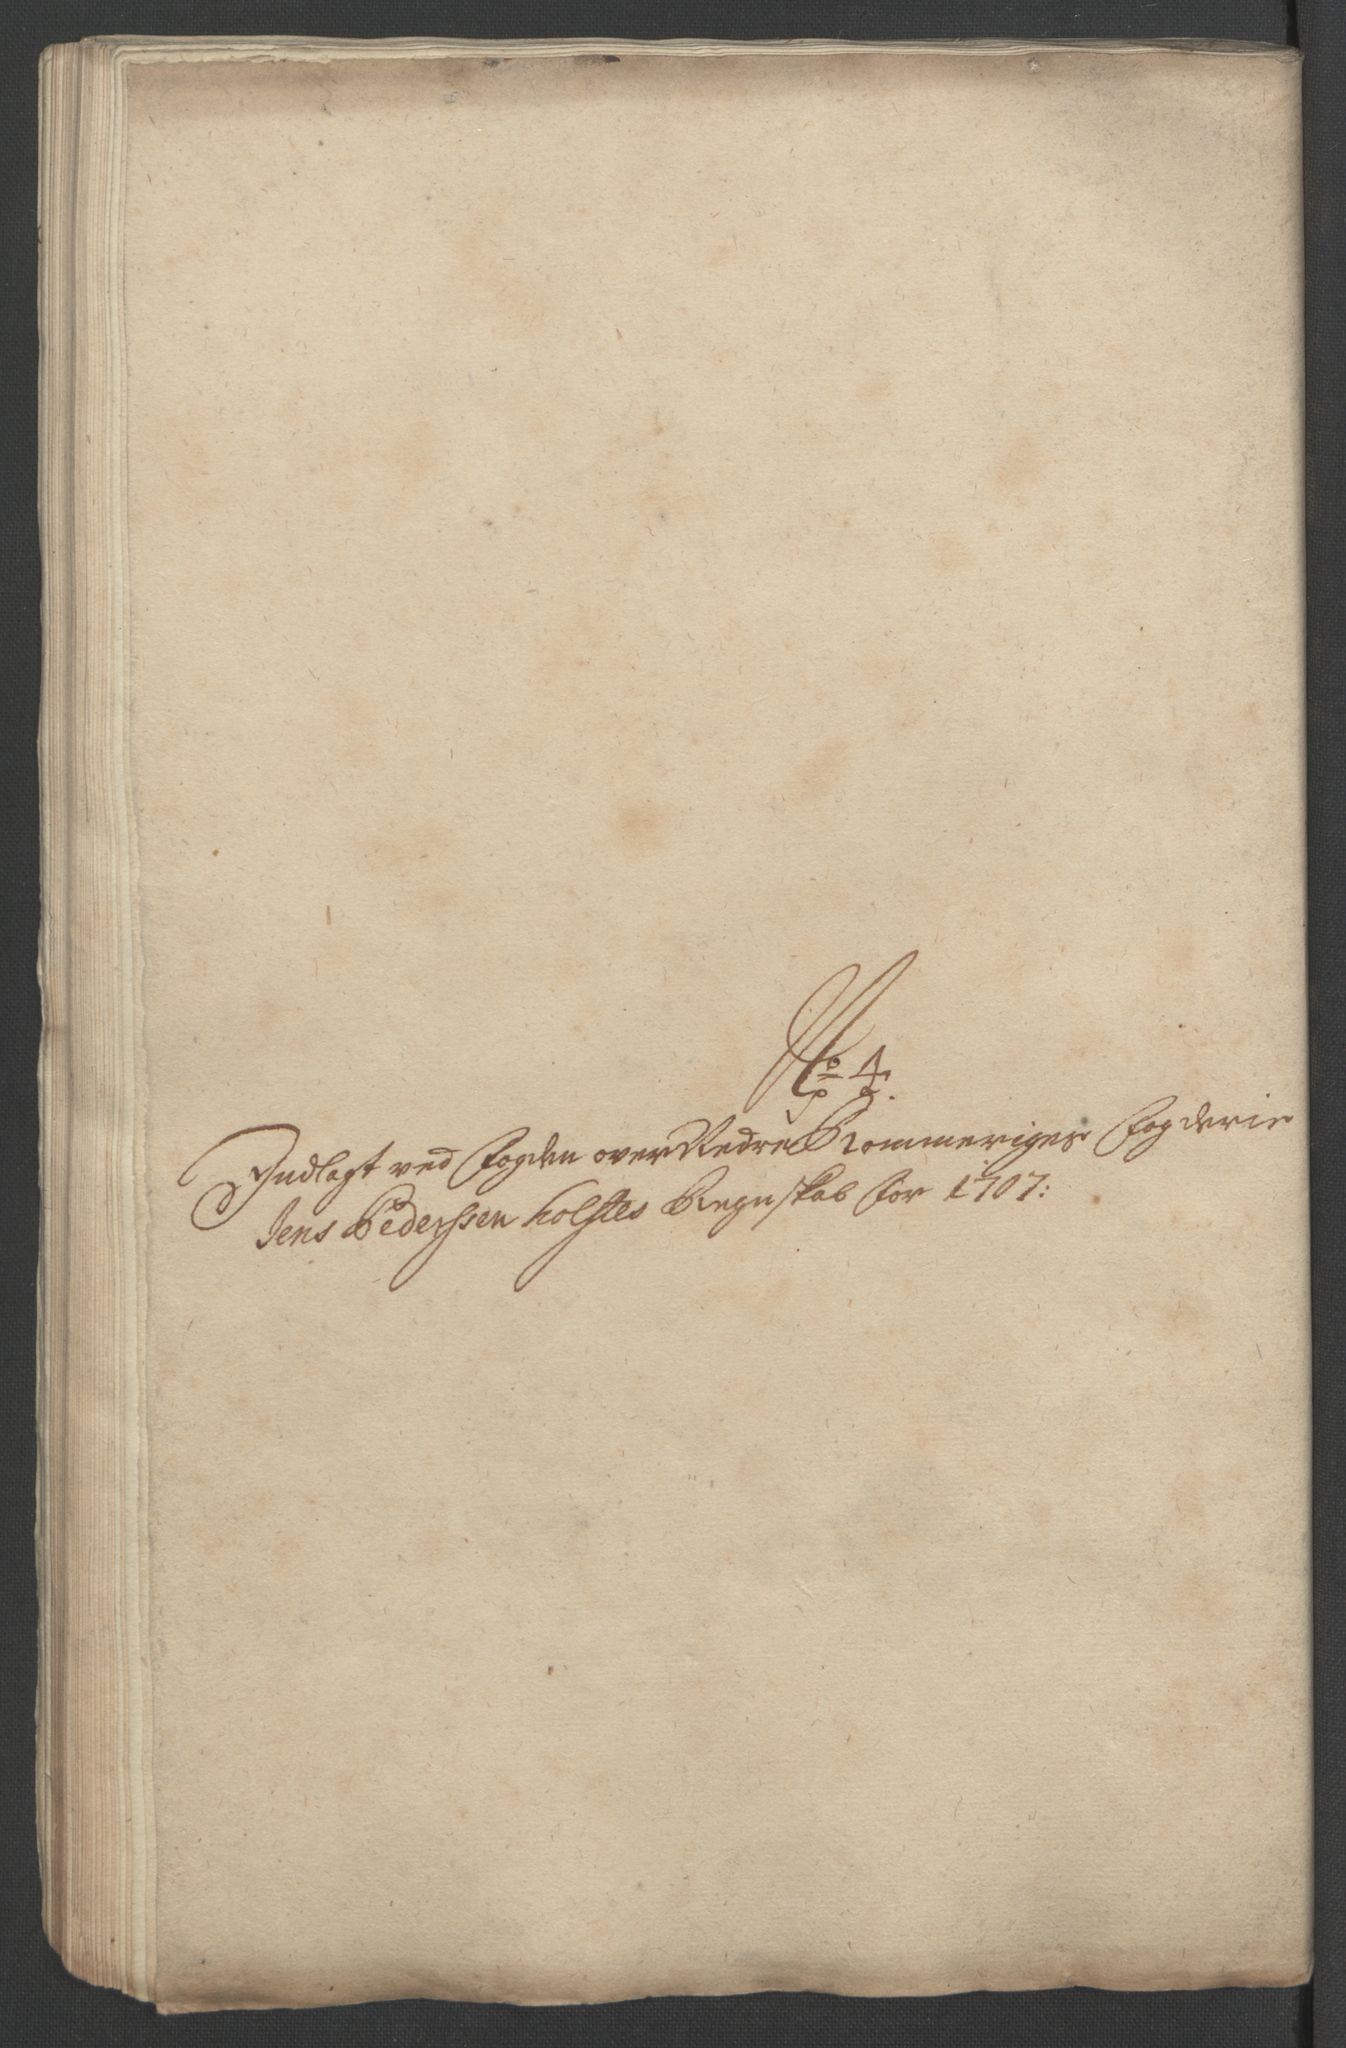 No 4.
Indlagt ved fogden over Nedre Rommeriges fogderie
Jens Pederssen holstes Regnskab for 1707: